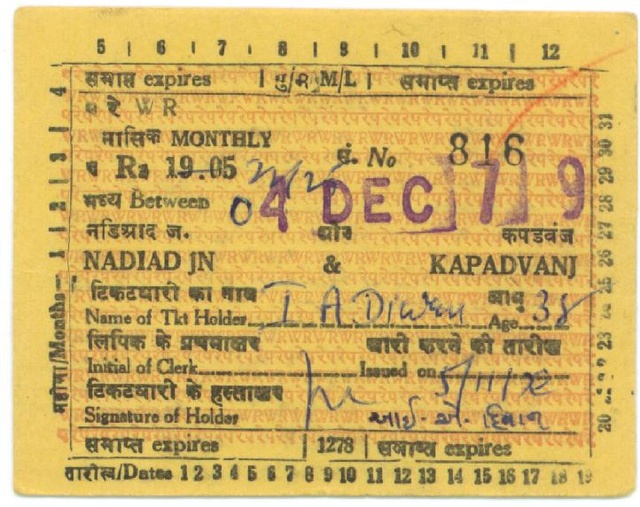 5 | 6 | 7 | 8 | 9 | 10 | 11 | 12
समाप्त expires | यु/म M/L | समाप्त expires
प रे W R
मासिक MONTHLY
रु Rs 19.05 सं. No 816
मध्य Between 04 DEC 79
नडिआद ज. और कपडवंज
NADIAD JN & KAPADVANJ
टिकटधारी का नाम आयु 38
Name of Tkt Holder I A Diwan Age
लिपिक के प्रथमाक्षर जारी करने की तारीख
Initial of Clerk Issued on 5/11/79
टिकटधारी के हस्ताक्षर
Signature of Holder આઈ. એ. દિવાન
समाप्त expires | 1278 | समाप्त expires
तारीख/Dates 1 2 3 4 5 6 7 8 9 10 11 12 13 14 15 16 17 18 19
महीना/Months 1 | 2 | 3 | 4
20 23 25 26 27 28 29 30 31